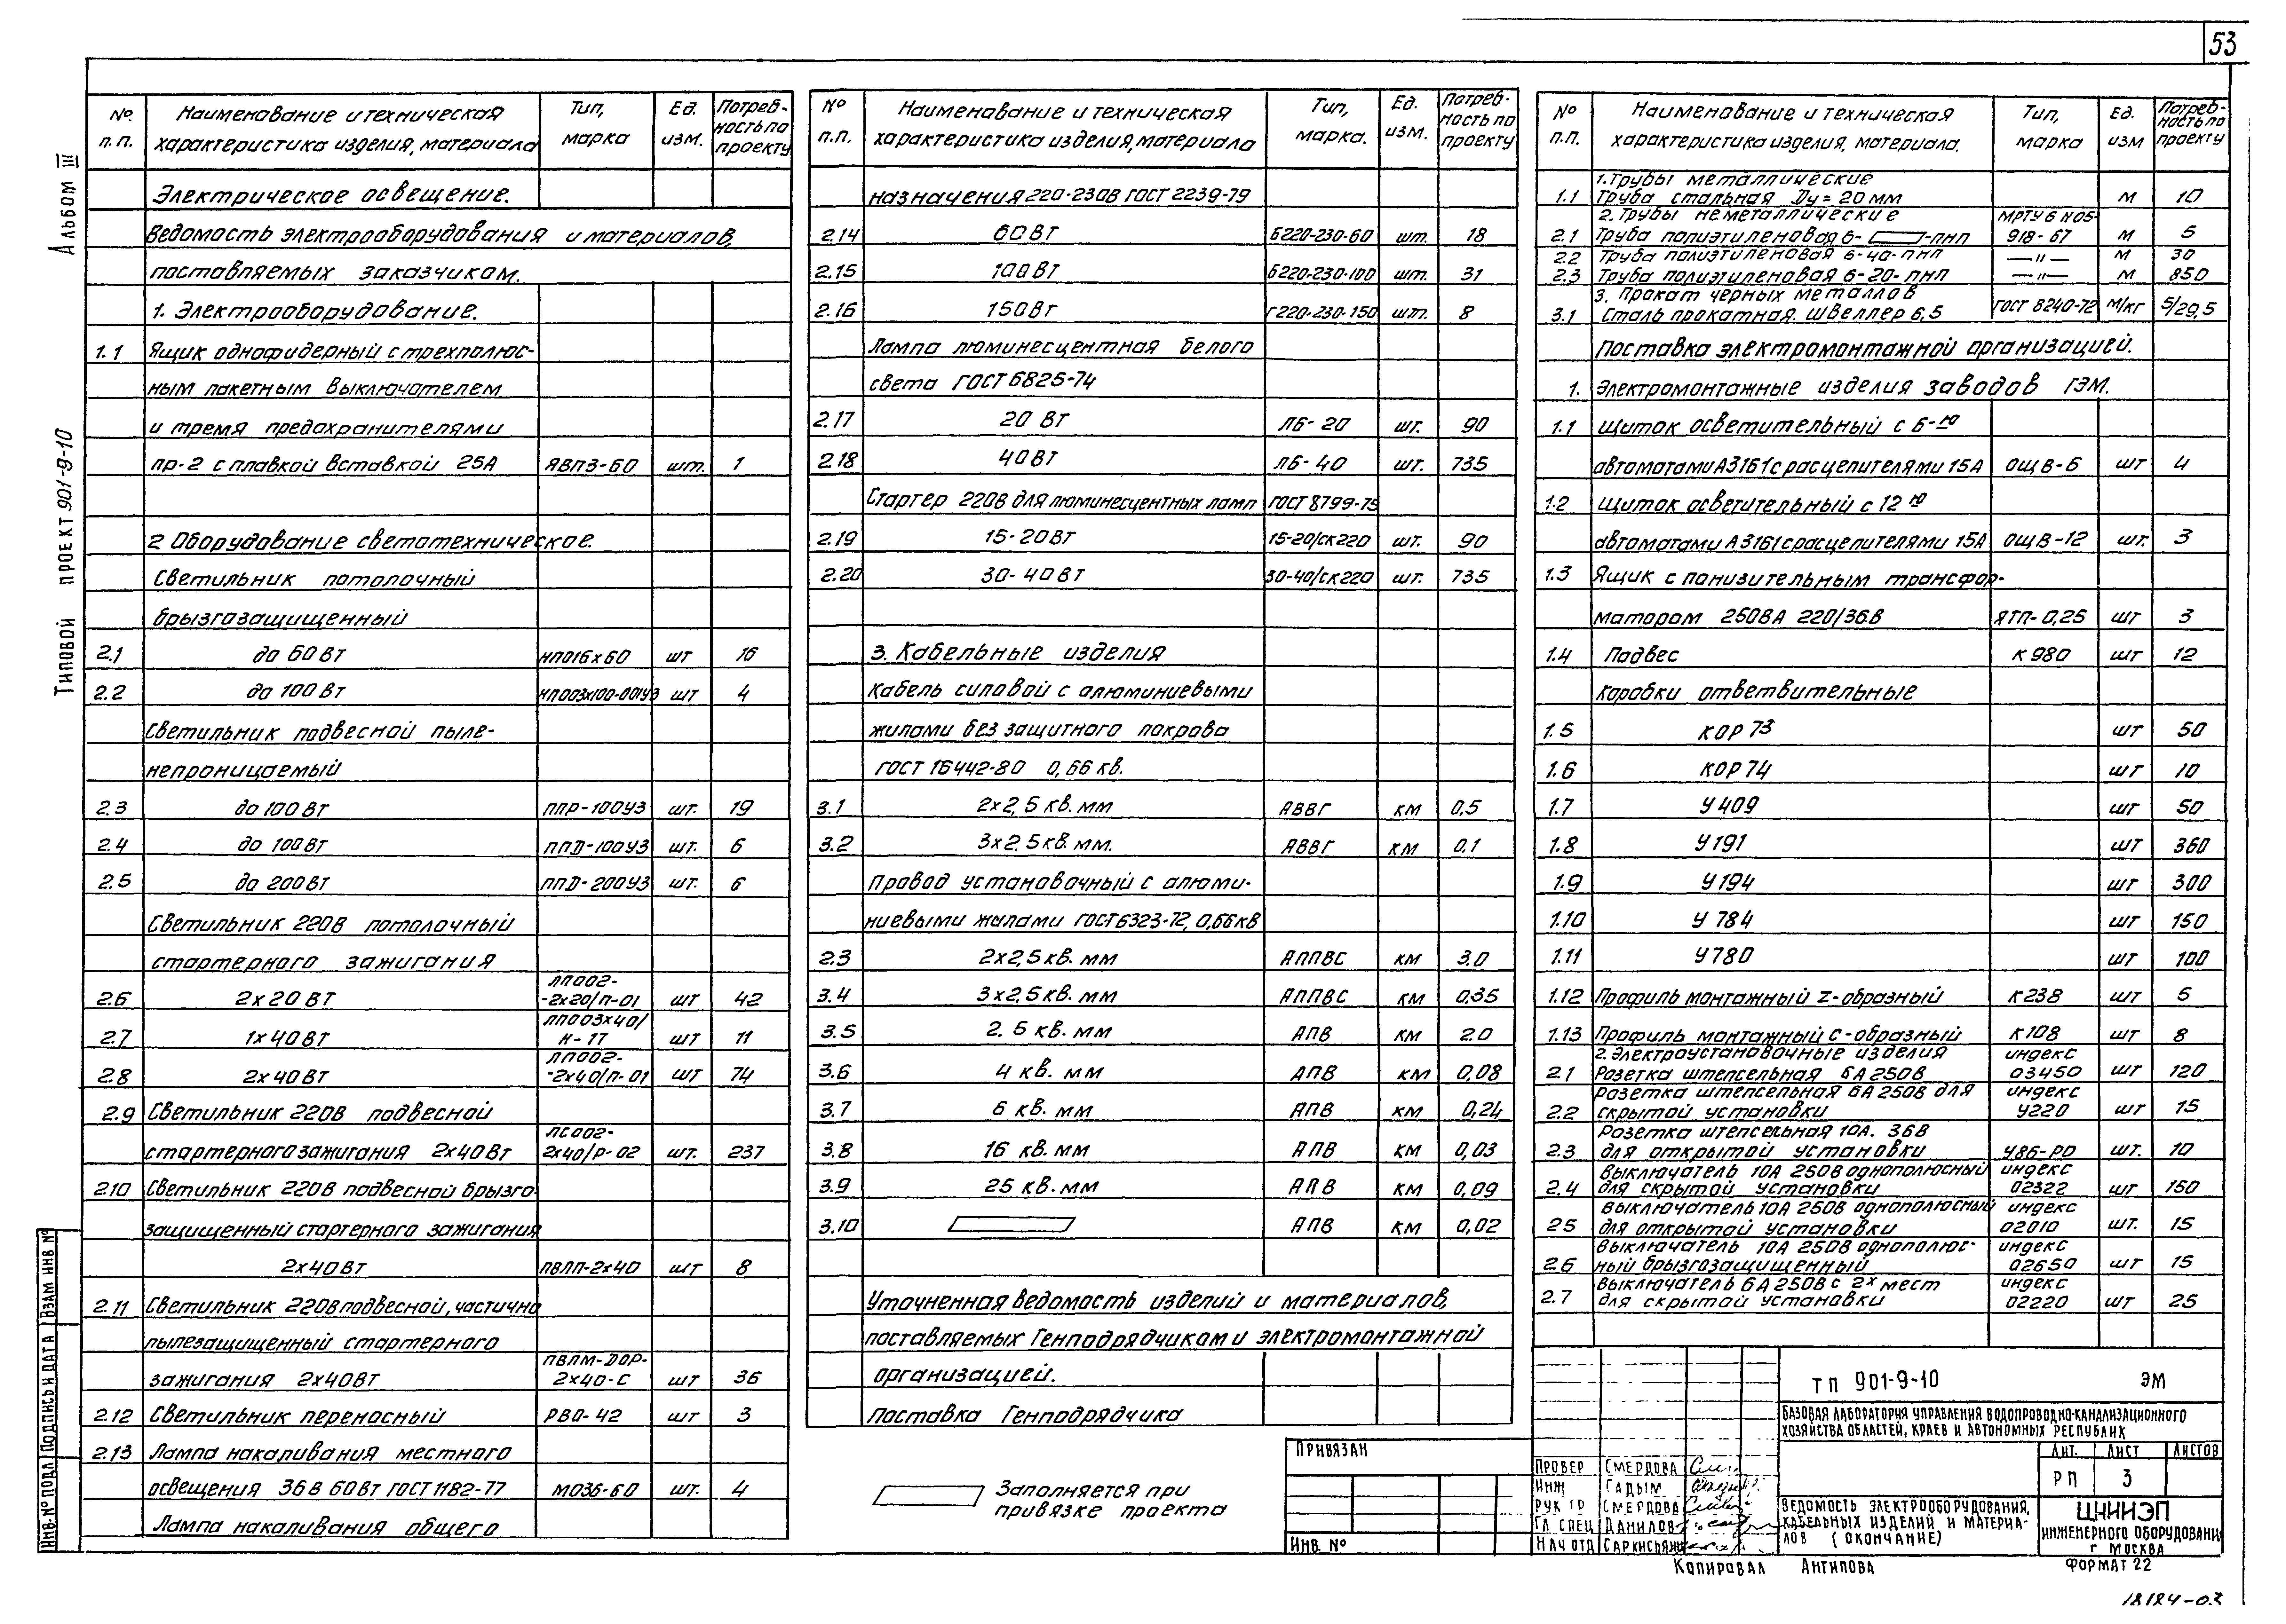 53
Альбом III
Типовой проект 901-9-10
№ п.п. Наименование и техническая характеристика изделия, материала Тип, марка Ед. изм. Потреб-ность по проекту
Электрическое освещение.
Ведомость электрооборудования и материалов,
поставляемых заказчикам.
1. Электрооборудование.
1.1 Ящик однофидерный с трехполюс-
ным пакетным выключателем
и тремя предохранителями
пр-2 с плавкой вставкой 25А ЯВПЗ-60 шт. 1
2 Оборудование светотехническое.
Светильник потолочный
брызгозащищенный
2.1 до 60 Вт НПО16х60 шт 16
2.2 до 100 Вт НПО03х100-001У3 шт 4
Светильник подвесной пыле-
непроницаемый
2.3 до 100 Вт ППР-100У3 шт. 19
2.4 до 100 Вт ППД-100У3 шт. 6
2.5 до 200 Вт ППД-200У3 шт. 6
Светильник 220В потолочный
стартерного зажигания
2.6 2х20 Вт ЛПО02--2х20/П-01 шт 42
2.7 1х40 Вт ЛПО03х40/Н-17 шт 11
2.8 2х40 Вт ЛПО02--2х40/П-01 шт 74
2.9 Светильник 220В подвесной
стартерного зажигания 2х40 Вт ЛСО02-2х40/Р-02 шт. 237
2.10 Светильник 220В подвесной брызго-
защищенный стартерного зажигания
2х40 Вт ПВЛП-2х40 шт 8
2.11 Светильник 220В подвесной, частично
пылезащищенный стартерного
зажигания 2х40 Вт ПВЛМ-DOP-2х40-С шт 36
2.12 Светильник переносный РВО-42 шт 3
2.13 Лампа накаливания местного
освещения 36В 60Вт ГОСТ 1182-77 МО36-60 шт. 4
Лампа накаливания общего
№ п.п. Наименование и техническая характеристика изделия, материала Тип, марка. Ед. изм. Потреб-ность по проекту
назначения 220-230В ГОСТ 2239-79
2.14 60 Вт Б220-230-60 шт. 18
2.15 100 Вт Б220-230-100 шт. 31
2.16 150 Вт Г220-230-150 шт. 8
Лампа люминесцентная белого
света ГОСТ 6825-74
2.17 20 Вт ЛБ-20 шт. 90
2.18 40 Вт ЛБ-40 шт. 735
Стартер 220В для люминесцентных ламп ГОСТ 8799-75
2.19 15-20 Вт 15-20/СК220 шт. 90
2.20 30-40 Вт 30-40/СК220 шт. 735
3. Кабельные изделия
Кабель силовой с алюминиевыми
жилами без защитного покрова
ГОСТ 16442-80 0,66 кв.
3.1 2х2,5 кв. мм АВВГ км 0,5
3.2 3х2,5 кв. мм. АВВГ км 0.1
Провод установочный с алюми-
ниевыми жилами ГОСТ 6323-72, 0,66кВ
2.3 2х2,5 кв. мм АППВС км 3.0
3.4 3х2,5 кв. мм АППВС км 0,35
3.5 2.5 кв. мм АПВ км 2.0
3.6 4 кв. мм АПВ км 0,08
3.7 6 кв. мм АПВ км 0,24
3.8 16 кв. мм АПВ км 0,03
3.9 25 кв. мм АПВ км 0,09
3.10 АПВ км 0,02
Уточненная ведомость изделий и материалов,
поставляемых Генподрядчикам и электромонтажной
организацией.
Поставка Генподрядчика
Заполняется при
привязке проекта
№ п.п. Наименование и техническая характеристика изделия, материала. Тип, марка Ед. изм Потреб-ность по проекту
1. Трубы металлические
1.1 Труба стальная Ду=20 мм м 10
2. Трубы неметаллические МРТУ 6 №05-
2.1 Труба полиэтиленовая 6- -ПНП 918-67 м 5
2.2 Труба полиэтиленовая 6-40-ПНП —"— м 30
2.3 Труба полиэтиленовая 6-20-ПНП —"— м 850
3. Прокат черных металлов
3.1 Сталь прокатная. Швеллер 6,5 ГОСТ 8240-72 м/кг 5/29,5
Поставка электромонтажной организацией.
1. Электромонтажные изделия заводов ГЭМ.
1.1 Щиток осветительный с 6-ю
автоматами А3161 с расцепителями 15А ОЩВ-6 шт 4
1.2 Щиток осветительный с 12 ю
автоматами А3161 с расцепителями 15А ОЩВ-12 шт. 3
1.3 Ящик с понизительным трансфор-
матором 250ВА 220/36В ЯТП-0,25 шт 3
1.4 Подвес К980 шт 12
Коробки ответвительные
1.5 КОР 73 шт 50
1.6 КОР 74 шт 10
1.7 У409 шт 50
1.8 У191 шт 360
1.9 У194 шт 300
1.10 У784 шт 150
1.11 У780 шт 100
1.12 Профиль монтажный Z-образный К238 шт 5
1.13 Профиль монтажный С-образный К108 шт 8
2. Электроустановочные изделия индекс
2.1 Розетка штепсельная 6А 250В 03450 шт 120
Розетка штепсельная 6А 250В для индекс
2.2 скрытой установки У220 шт 15
Розетка штепсельная 10А. 36В
2.3 для открытой установки У86-РО шт. 10
Выключатель 10А 250В однополюсный индекс
2.4 для скрытой установки 02322 шт 150
Выключатель 10А 250В однополюсный индекс
2.5 для открытой установки 02010 шт. 15
Выключатель 10А 250В однополюс- индекс
2.6 ный брызгозащищенный 02650 шт 15
Выключатель 6А 250В с 2х мест индекс
2.7 для скрытой установки 02220 шт 25
Привязан
Инв №
Провер Смердова
Инж Гадым
Рук гр Смердова
Гл спец Данилов
Нач отд Саркисьян
ТП 901-9-10 ЭМ
Базовая лаборатория управления водопроводно-канализационного
хозяйства областей, краев и автономных республик
Лит. Лист Листов
РП 3
Ведомость электрооборудования,
кабельных изделий и материа-
лов (окончание)
ЦНИИЭП
инженерного оборудования
г Москва
Копировал Антипова
Формат 22
18184-03
Инв. № подл Подпись и дата Взам инв №